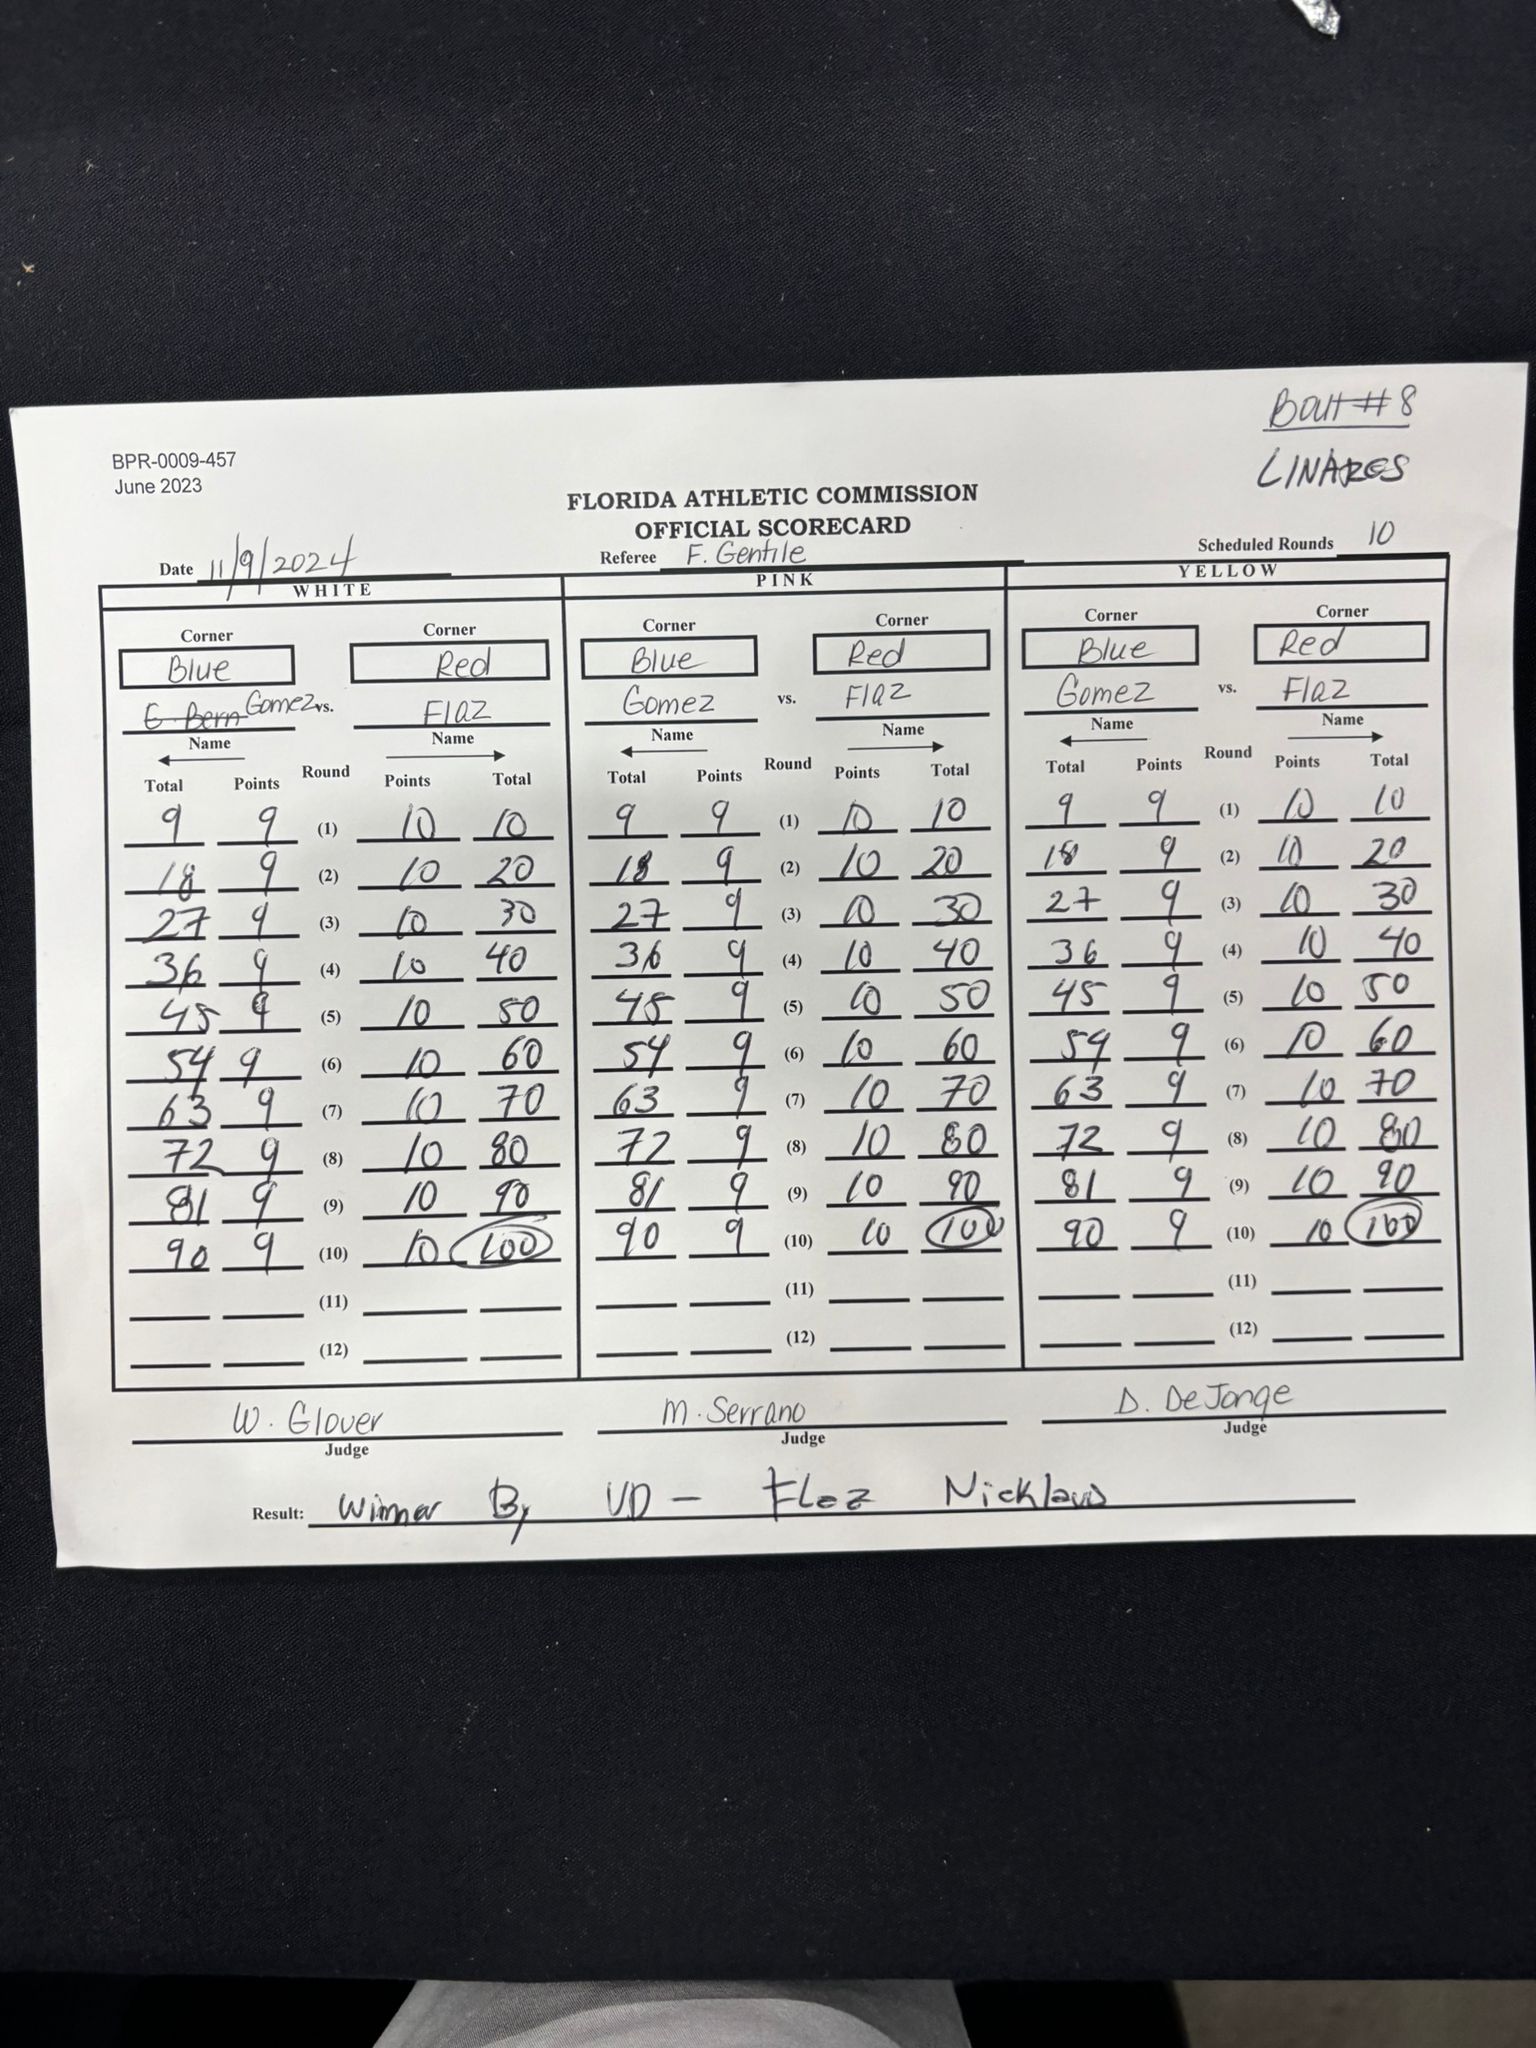 Bout #8
LINARES
BPR-0009-457
June 2023
FLORIDA ATHLETIC COMMISSION
OFFICIAL SCORECARD
Date 11/9/2024 Referee F. Gentile Scheduled Rounds 10
WHITE PINK YELLOW
Corner Corner Corner Corner Corner Corner
Blue Red Blue Red Blue Red
E. Bern Gomez vs. Flaz Gomez vs. Flaz Gomez vs. Flaz
Name Name Name Name Name Name
Total Points Round Points Total Total Points Round Points Total Total Points Round Points Total
9 9 (1) 10 10 9 9 (1) 10 10 9 9 (1) 10 10
18 9 (2) 10 20 18 9 (2) 10 20 18 9 (2) 10 20
27 9 (3) 10 30 27 9 (3) 10 30 27 9 (3) 10 30
36 9 (4) 10 40 36 9 (4) 10 40 36 9 (4) 10 40
45 9 (5) 10 50 45 9 (5) 10 50 45 9 (5) 10 50
54 9 (6) 10 60 54 9 (6) 10 60 54 9 (6) 10 60
63 9 (7) 10 70 63 9 (7) 10 70 63 9 (7) 10 70
72 9 (8) 10 80 72 9 (8) 10 80 72 9 (8) 10 80
81 9 (9) 10 90 81 9 (9) 10 90 81 9 (9) 10 90
90 9 (10) 10 100 90 9 (10) 10 100 90 9 (10) 10 100
(11) (11) (11)
(12) (12) (12)
W. Glover M. Serrano D. DeJonge
Judge Judge Judge
Result: Winner By UD - Flaz Nicklaus